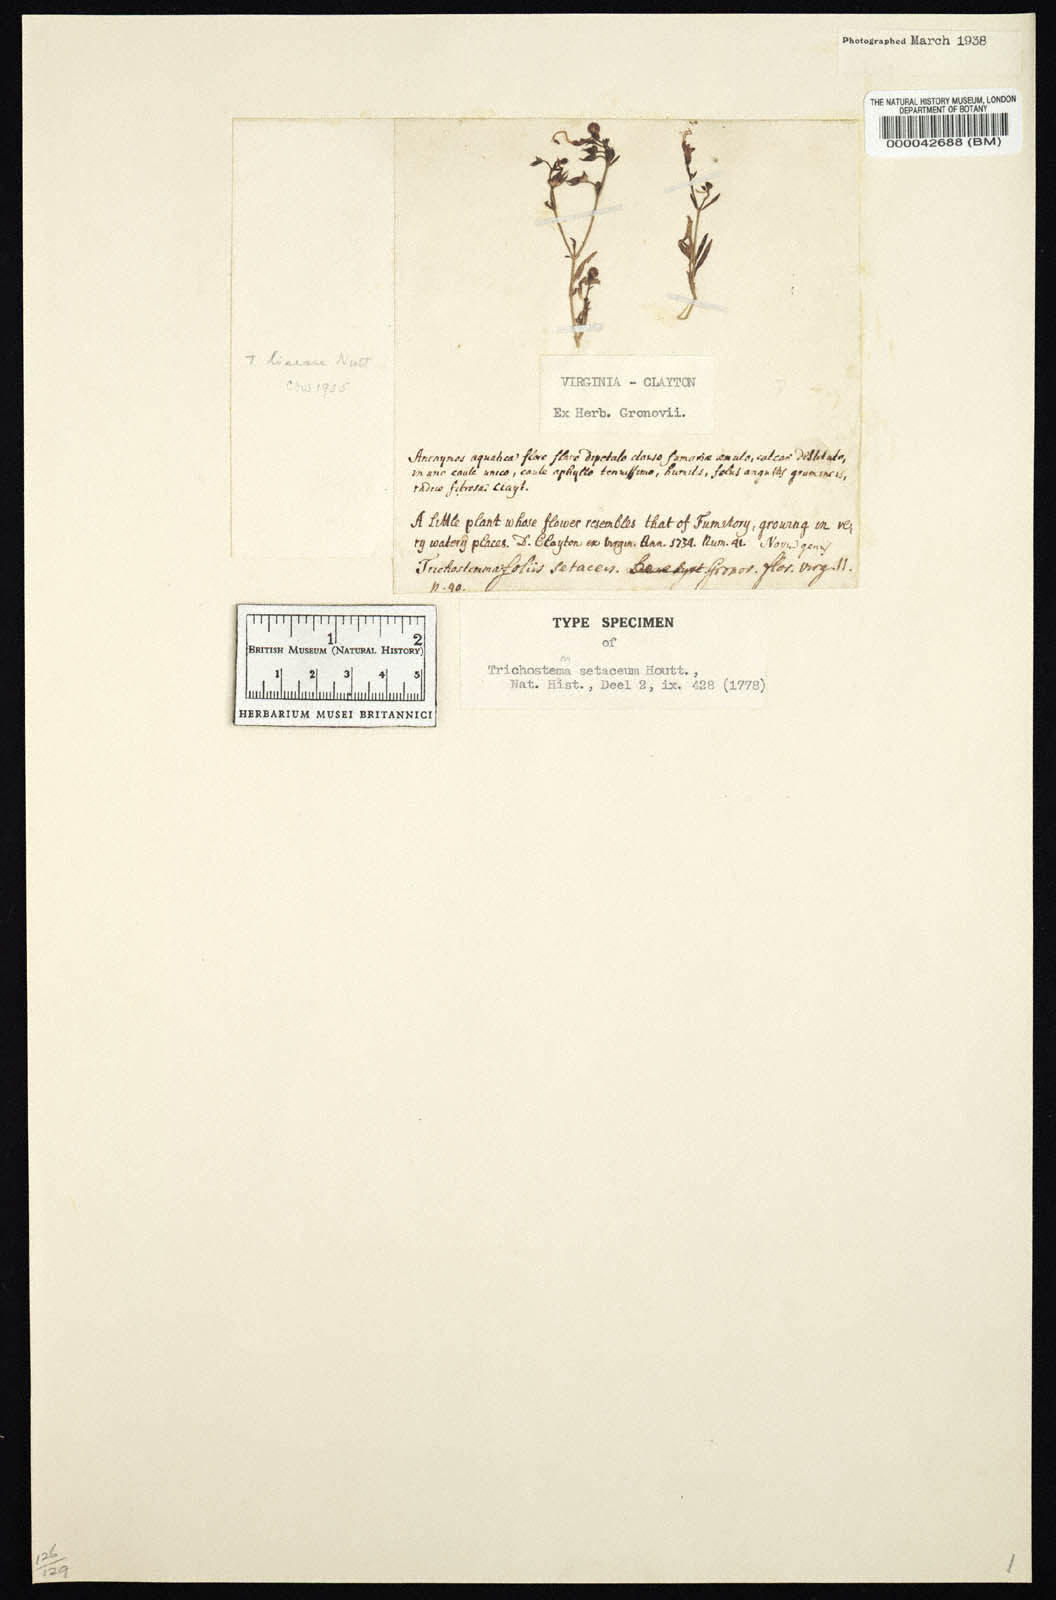 Photographed March 1938
THE NATURAL HISTORY MUSEUM, LONDON
DEPARTMENT OF BOTANY
000042688 (BM)
T. lineare Nutt
1935
VIRGINIA - CLAYTON
Ex Herb. Gronovii.
Anonymos aquatica flore flavo dipetalo clauso fumariæ æmulo, calcar destituto,
caule unico, caule aphyllo tenuissimo, humilis, foliis angustis gramineis,
radice fibrosa. Clayt.
A little plant whose flower resembles that of Fumitory, growing in ve,
ry watery places. D. Clayton ex Virgin. Ann. 1734. Num. 41. Novu genus
Trichostemma foliis setaceis. Gronov. flor. virg. 11.
n. 90.
1 2
BRITISH MUSEUM (NATURAL HISTORY)
1 2 3 4 5
HERBARIUM MUSEI BRITANNICI
TYPE SPECIMEN
of
m
Trichostema setaceum Houtt.,
Nat. Hist., Deel 2, ix. 428 (1778)
126
129
1